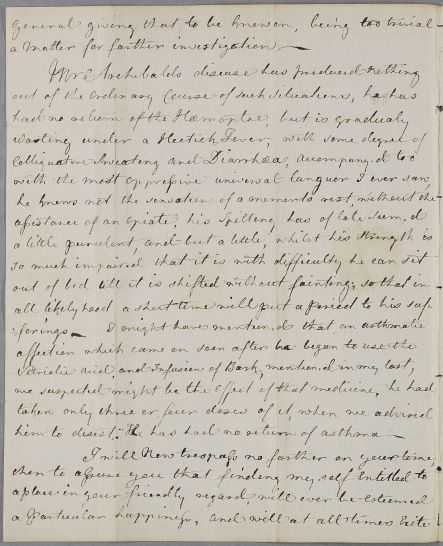 general giving that to be known, being too trivial
a matter for farther investigation —
Mr Archibalds disease has produced nothing
out of the Ordenary Course of such Situations, he has
had no return of the Hæmoptoe, but is gradualy
Wasting under a Hectick Fever, with some degree of
Colliquative Sweating and Diarrhœa, accompany.d too
with the most oppressive universal languor I ever saw,
he knows not the sensation of a moments rest without the
assistance of an opiate, his Spitting has of late seem,d
a little purulent, and but a little, whilst his strength is
so much impaired that it is with difficulty he can sit
out of bed till it is shifted without fainting; so that in
all likelyhood a short time will put a Period to his suf
=ferings — I might have mention,d that an asthmatic
affection which came on soon after he began to use the
Vitriolic acid, and Infusion of Bark, mention,d in my last,
we suspected might be the effect of that medicine, he had
taken only three or four doses of it, when we advised
him to desist. He has had no return of asthma —
I will Now trespass no farther on your time,
then to assure you that finding my self Entitled to
a place in your friendly regard, will ever be Esteemed
a Particular happiness, and will at all times Exite